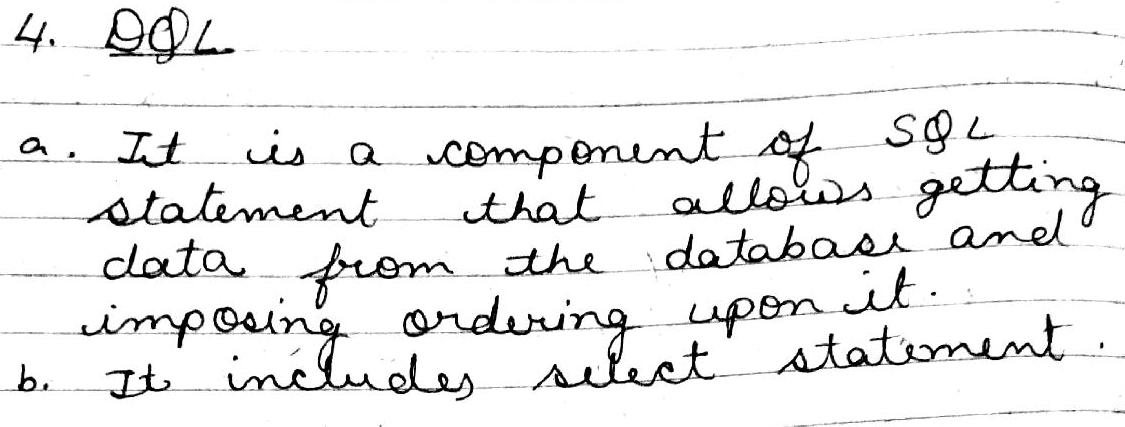 4. DQL
a. It is a component of SQL
statement that allows getting
data from the database and
imposing ordering upon it.
b. It includes select statement.